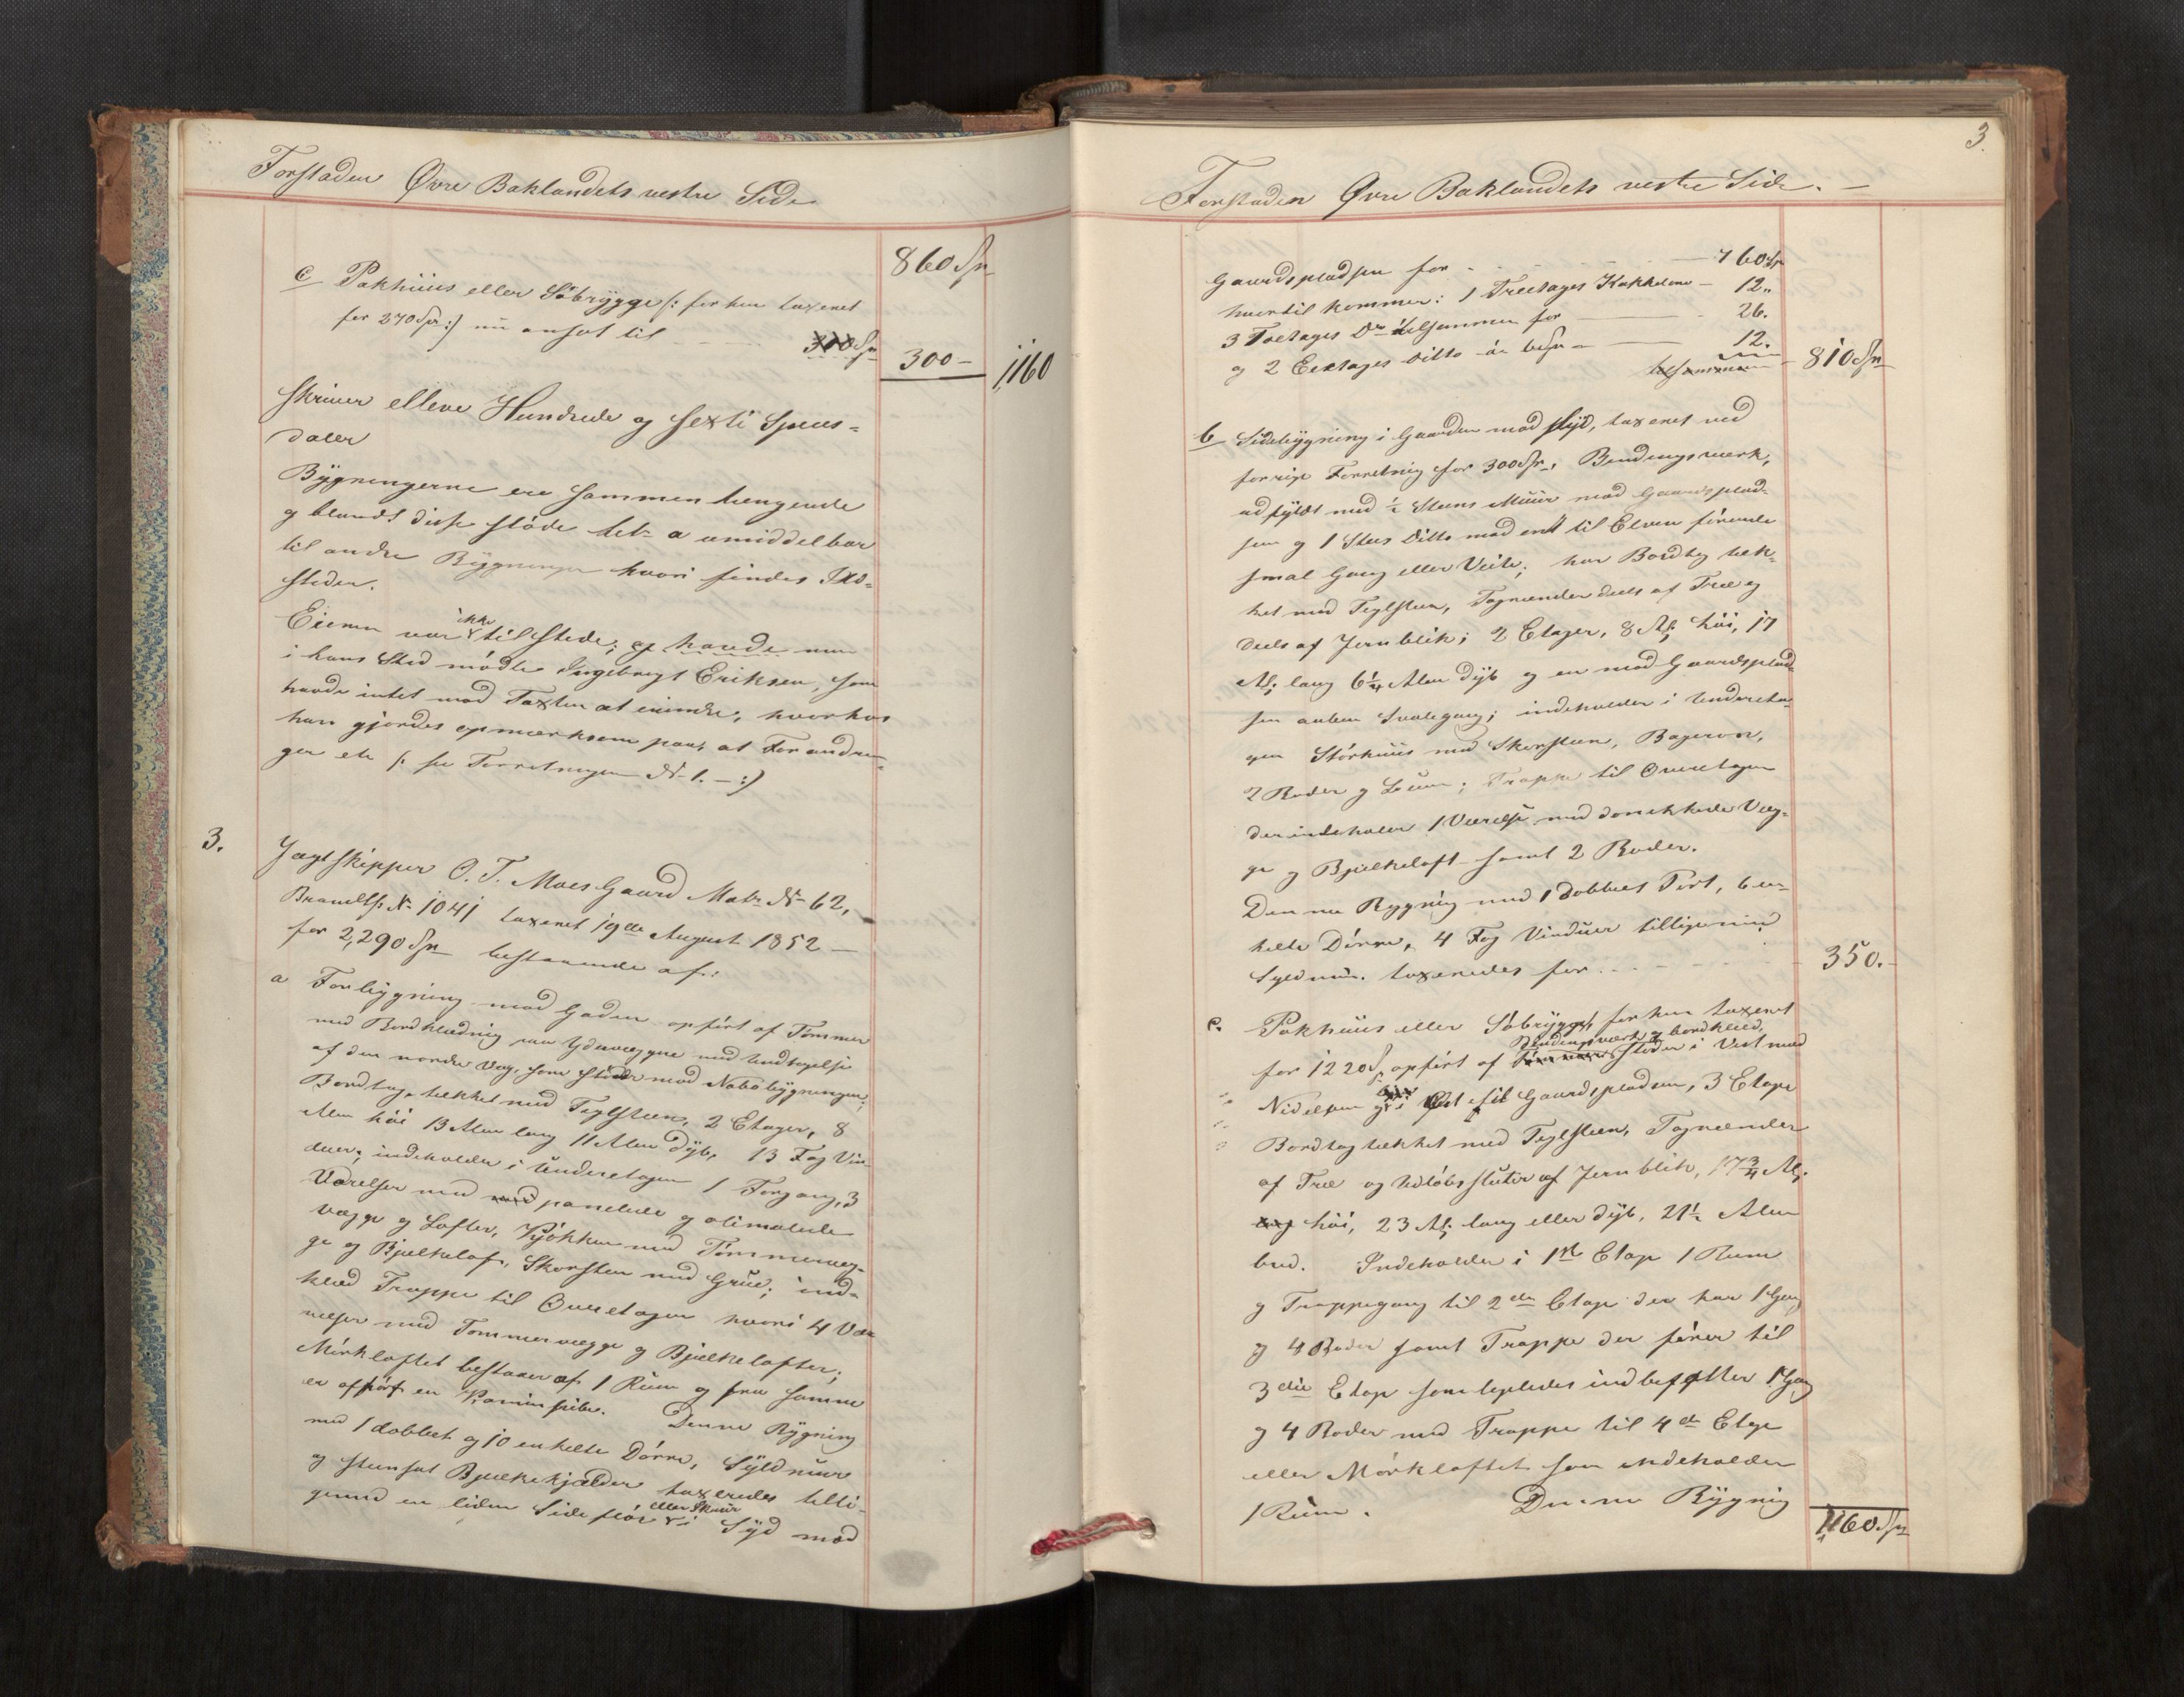 Forstaden Øvre Baklandets vestre Side
860 Spd
c Pakhuus eller Søbrygge (: før hen taxeret
for 270 Spd :) nu ansat til 300 Spd
300 –
1,160
skriver elleve Hundrede og sexti Species=
daler
Bygningerne ere sammenhengende
og blandt disse støde litr a umiddelbar
til andre Bygninger hvori findes Ild=
steder.
Eieren var ikke tilstede; og havde men
i hans Sted mødte Ingebrigt Eriksen, som
havde intet mod Taxten at erindre, hvorhos
han gjordes opmærksom paa, at Forandrin=
ger etc (: see Forretningen № 1. – :)
3.
Jægtskipper O. T. Moes Gaard Matr № 62,
Brandts: № 1041 taxeret 19de August 1852 –
for 2,290 Spd bestaaende af:
a Forbygning mod Gaden opført af Tømmer
med Bordklædning paa Ydervæggene med Undtagelse
af den nordre Væg, som støder mod Nabobygningen;
Bordtag tækket med Teglsteen, 2 Etager, 8
Alen høi 13 Alen lang 11 Alen dyb, 13 Fag Vin=
duer; indeholder i Underetagen 1 Forgang, 3
Værelser med med panelede og oliemalede
Vægge og Lofter, Kjøkken med Tømmervæg=
ge og Bjelkeloft, Skorsten med Grue; ind=
klæd Trappe til Overetagen hvori 4 Væ=
relser med Tømmervægge og Bjelkelofter;
Mørkloftet bestaaer af 1 Rum og fra samme
er opført en Kaminpibe. Denne Bygning
med 1 dobbelt og 10 enkelte Dørre, Syldmuur
og steensat Bjelkekjælder taxeredes tilli=
gemed en liden Sidefløi eller Skuur i Syd mod
3.
Forstaden Øvre Baklandets vestre Side. –
Gaardspladsen for 760 Spd
hvortil kommer: 1 Treetages Kakkelovn – 12 "
3 Toetages Do tilsammen for 26.
og 2 Eenetages ditto 12.
tilsammen 810 Spd
b Sidebygning i Gaarden mod Syd, taxeret ved
forrige Forretning for 300 Spd, Bindingsværk,
udfyldt med ½ Steens Muur mod Gaardsplad=
sen og 1 Stens ditto mod en til Elven førende
smal Gang eller Veite; har Bordtag tæk=
ket med Teglsteen, Tagrender deels af Træ og
deels af Jernblik; 2 Etager, 8 Al: høi, 17
Al: lang 6¼ Alen dyb og en mod Gaardsplad=
sen aaben Svalegang; indeholder i Undereta=
gen Størhuus med Skorsteen, Bagerovn,
2 Boder og Trappe til Overetagen
der indeholder 1 Værelse med Væg=
ge og Bjelkeloft samt 2 Boder.
Denne Bygning med 1 dobbelt Port, 6 en=
kelte Dørre, 4 Fag Vinduer tilligemed
Syldmur taxeredes for 350. –
c. Pakhuus eller Søbrygge, før hen taxeret
for 1220 Spd, opført af Tømmer Bindingsværk og bordklæd, støder i Vest mod
Nidelven og i Øst til Gaardspladsen, 3 Etage
Bordtag tækket med Teglsteen, Tagrender
af Træ og Udløbsstuter af Jernblik, 17¾ Al:
høi, 23 Al: lang eller dyb, 21½ Alen
bred. Indeholder i 1ste Etage 1 Rum
og Trappegang til 2den Etage der har 1 Gang
og 4 Boder samt Trappe der fører til
3die Etage som ligeledes indbefatter 1 Gang
og 4 Boder med Trappe til 4de Etage
eller Mørkloftet som indeholder
1 Rum. Denne Bygnig
1160 Spd